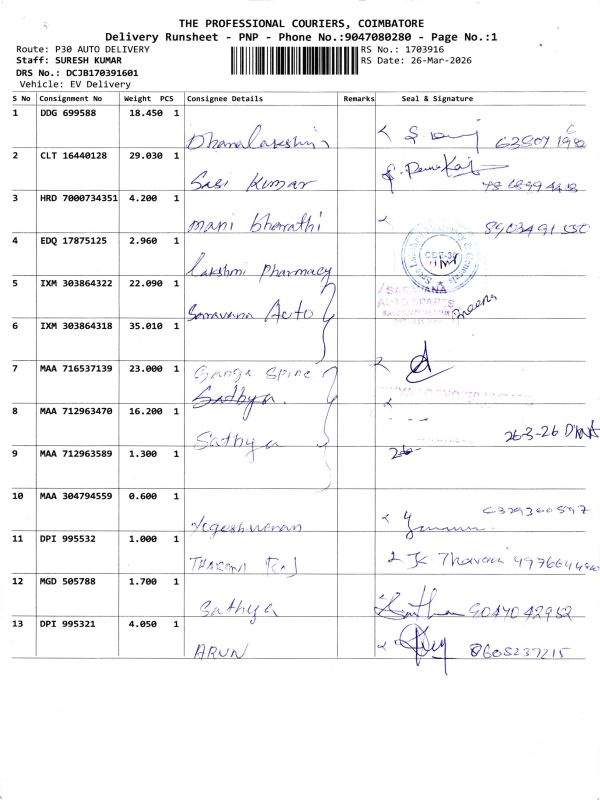 THE PROFESSIONAL COURIERS, COIMBATORE
Delivery Runsheet - PNP - Phone No.:9047080280 - Page No.:1
Route: P30 AUTO DELIVERY
RS No.: 1703916
Staff: SURESH KUMAR
RS Date: 26-Mar-2026
DRS No.: DCJB170391601
Vehicle: EV Delivery
S No Consignment No Weight PCS Consignee Details Remarks Seal & Signature
1 DDG 699588 18.450 1
Dhanalakshmi
2 CLT 16440128 29.030 1
Sasi Kumar
3 HRD 7000734351 4.200 1
Mani bharathi 8903491550
4 EDQ 17875125 2.960 1
Lakshmi Pharmacy
5 IXM 303864322 22.090 1
Saravana Auto
AUTO SPARES
6 IXM 303864318 35.010 1
7 MAA 716537139 23.000 1
Ganga Spine
Sathya.
8 MAA 712963470 16.200 1
Sathya 26-3-26
9 MAA 712963589 1.300 1
26-
10 MAA 304794559 0.600 1
Yogeshwaran
11 DPI 995532 1.000 1
THARANI
12 MGD 505788 1.700 1
Sathya 9047042952
13 DPI 995321 4.050 1
ARUN 8608237215